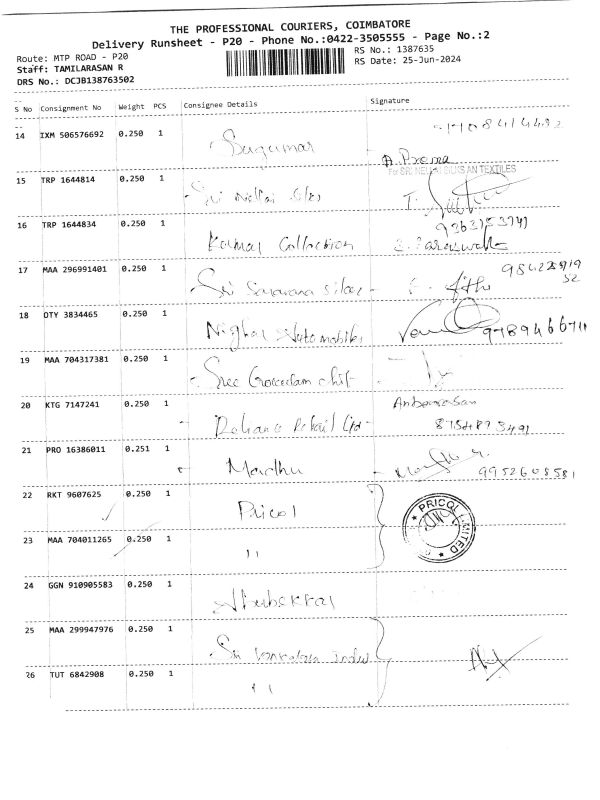 THE PROFESSIONAL COURIERS, COIMBATORE
Delivery Runsheet - P20 - Phone No.:0422-3505555 - Page No.:2
Route: MTP ROAD - P20
RS No.: 1387635
Staff: TAMILARASAN R
RS Date: 25-Jun-2024
DRS No.: DCJB138763502
S No Consignment No Weight PCS Consignee Details Signature
14 IXM 506576692 0.250 1 Sugumar
A. Prema
For SRI NELLAI SILKS AN TEXTILES
15 TRP 1644814 0.250 1 Sri Nellai
16 TRP 1644834 0.250 1 Kamal Collection
17 MAA 296991401 0.250 1 Sri Saravana
18 OTY 3834465 0.250 1 Automobiles
19 MAA 704317381 0.250 1 Sree
20 KTG 7147241 0.250 1 Reliance Retail Ltd Anbarasan
8754873491
21 PRO 16386011 0.251 1 Madhu
9952608581
22 RKT 9607625 0.250 1 Pricol
PRICOL LIMITED
23 MAA 704011265 0.250 1 "
24 GGN 910905583 0.250 1
25 MAA 299947976 0.250 1 Sri
26 TUT 6842908 0.250 1 "